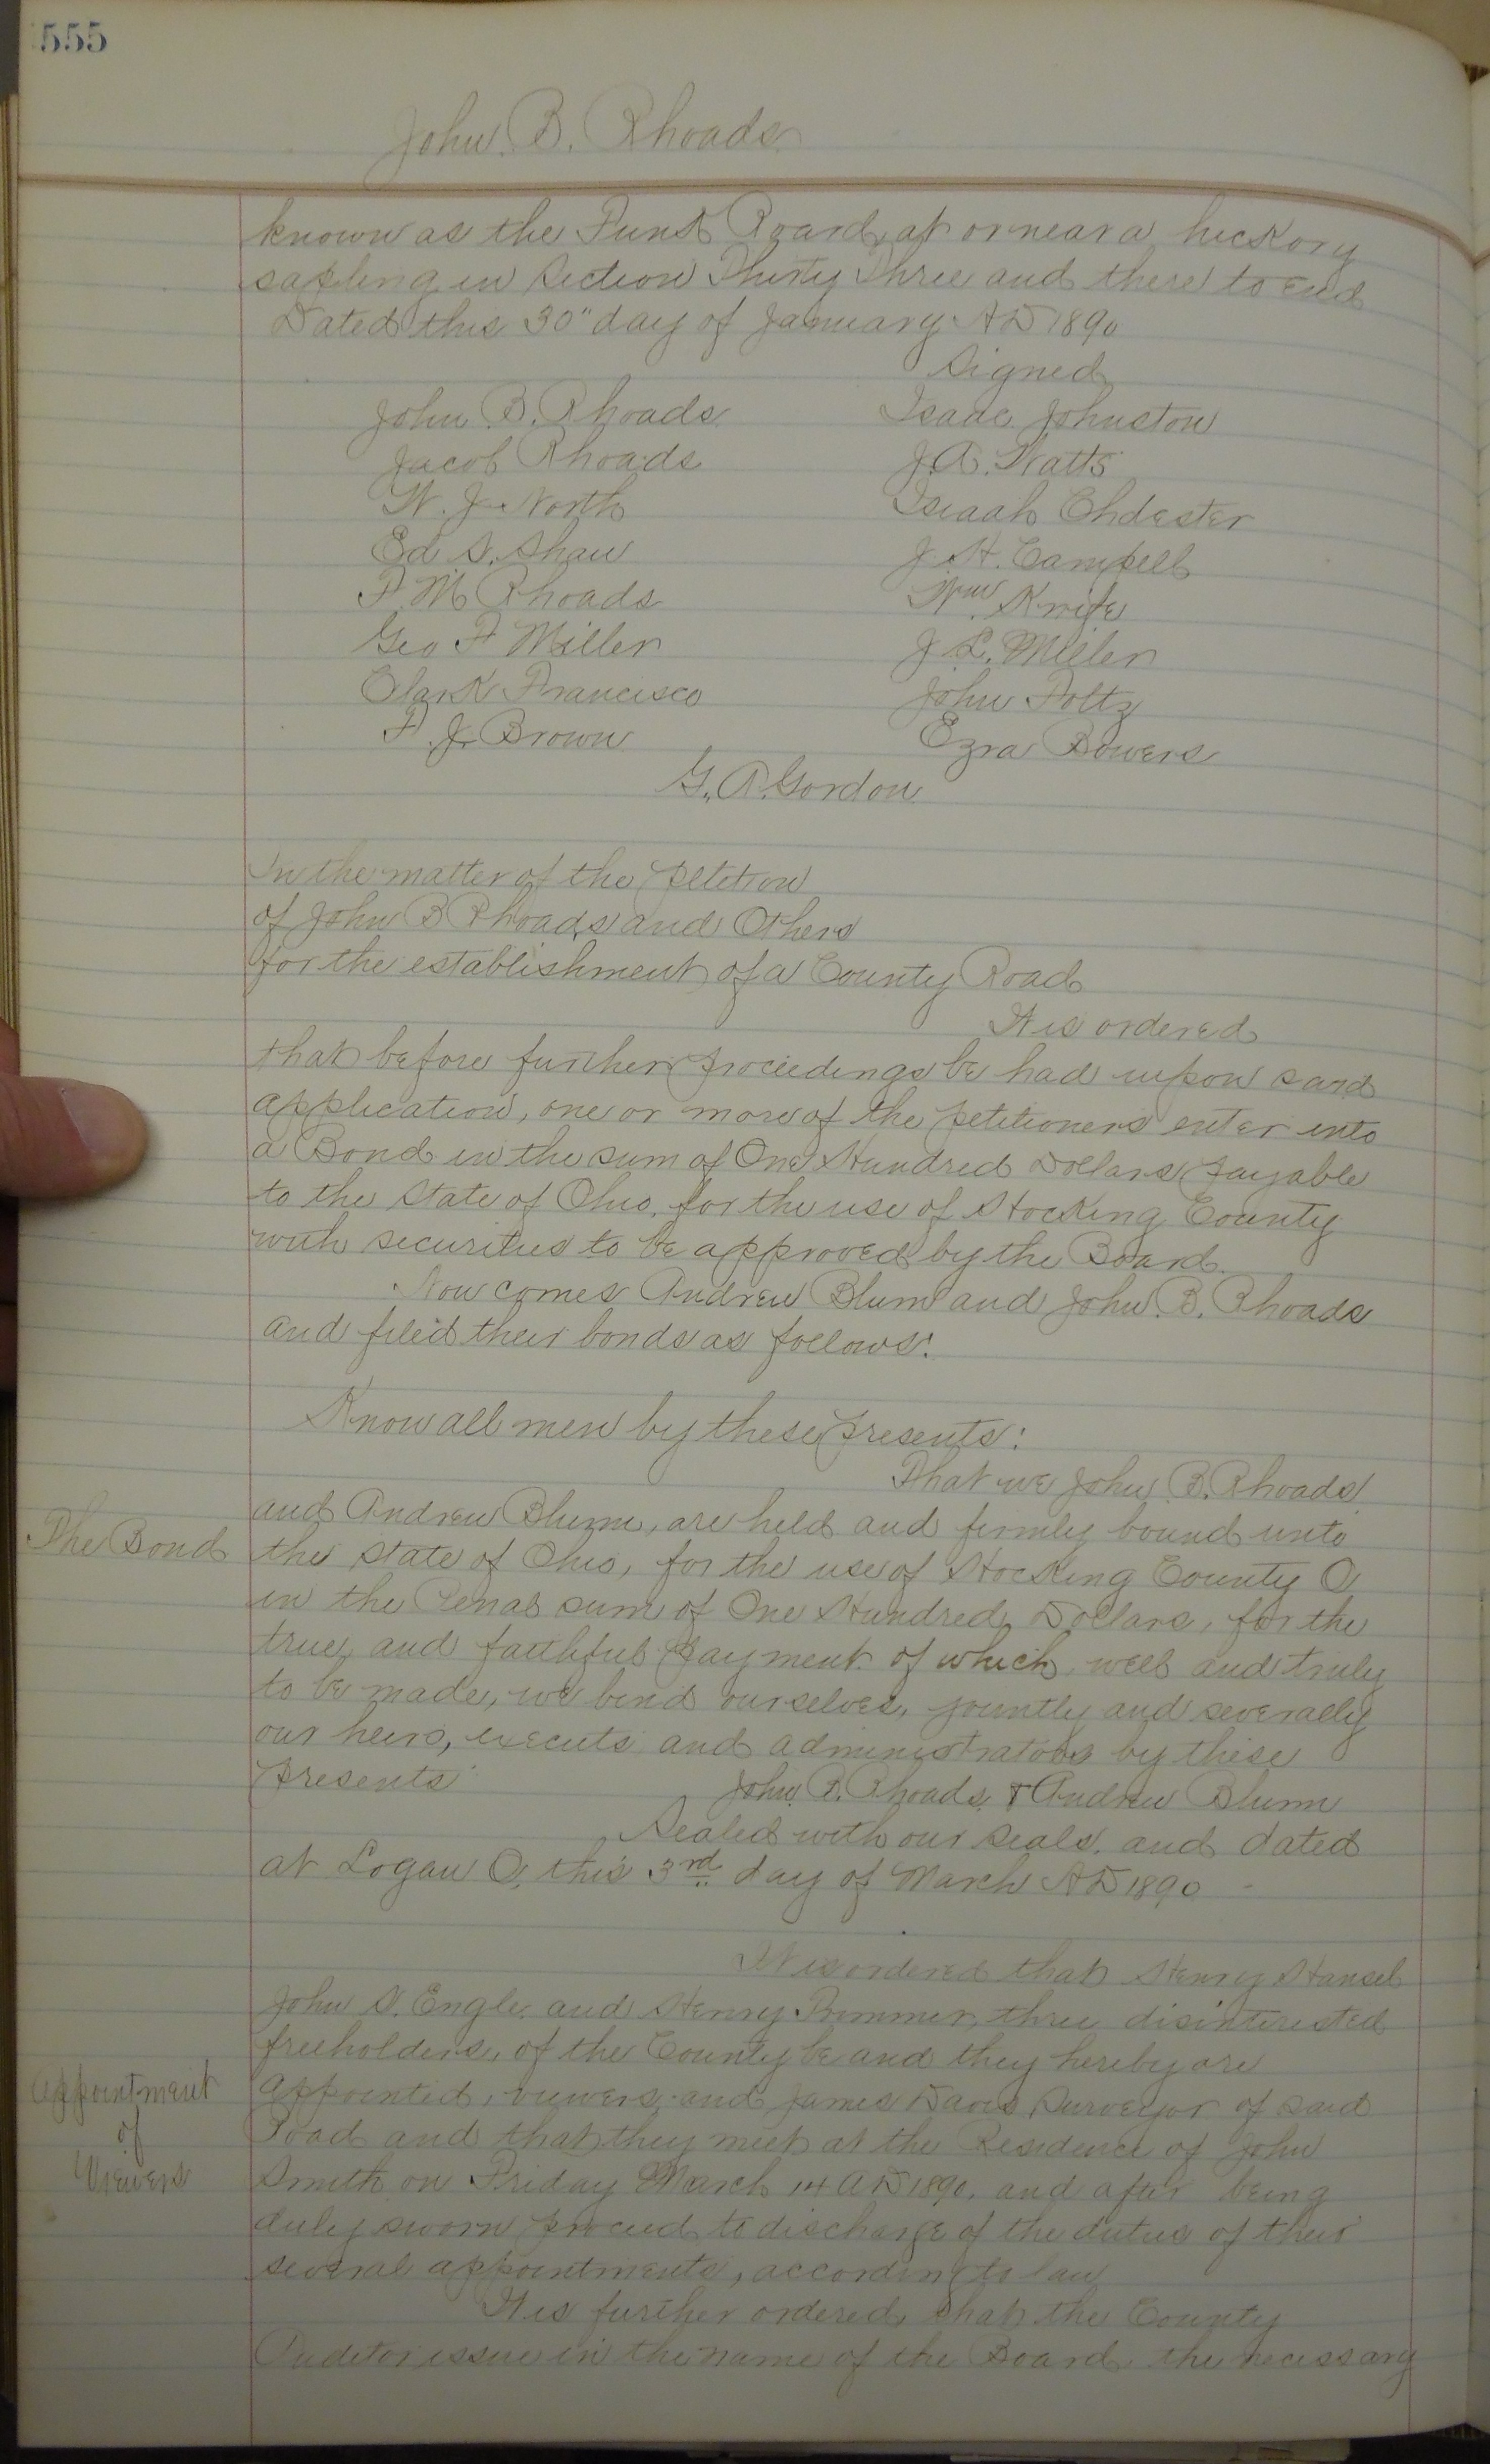 555
John B. Rhoads
known as the Funk Road, at or near a hickory
sapling in Section Thirty Three and there to end
Dated this 30" day of January AD 1890
Signed
John B. Rhoads
Isaac Johnston
Jacob Rhoads
J. A. Watts
W. J. North
Isaiah Chdester
Ed S. Shaw
J. H. Campell
F M Rhoads
Wm. Knife
Geo F Miller
J L. Miller
Clark Francisco
John Foltz
F. J. Brown
Ezra Bowers
G. A. Gordon
In the matter of the petition
of John B Rhoads and Others
for the establishment of a County Road
It is ordered
that before further proceedings be had upon said
application, one or more of the petitioners enter into
a Bond in the sum of One Hundred Dollars payable
to the State of Ohio, for the use of Hocking County
with securities to be approved by the Board.
Now comes Andrew Blum and John B. Rhoads
and filed their bonds as follows:
Know all men by these presents:
That we John B. Rhoads
The Bond
and Andrew Blum, are held and firmly bound unto
the State of Ohio, for the use of Hocking County O
in the Penal sum of One Hundred Dollars, for the
true, and faithful payment of which well and truly
to be made, we bind ourselves, jointly and severally
our heirs, executs and administrators by these
presents
John B. Rhoads & Andrew Blum
Sealed with our seals, and dated
at Logan O, this 3rd day of March AD 1890
It is ordered that Henry Hansel
John S. Engle and Henry Primmer, three disinterested
freeholders, of the County be and they hereby are
Appointment
of
Viewers
appointed, viewers and James Davis Surveyor of said
Road and that they meet at the Residence of John
Smith on Friday March 14 AD 1890, and after being
duly sworn proceed to discharge of the duties of their
several appointments, according to law
It is further ordered, that the County
Auditor issue in the name of the Board the necessary